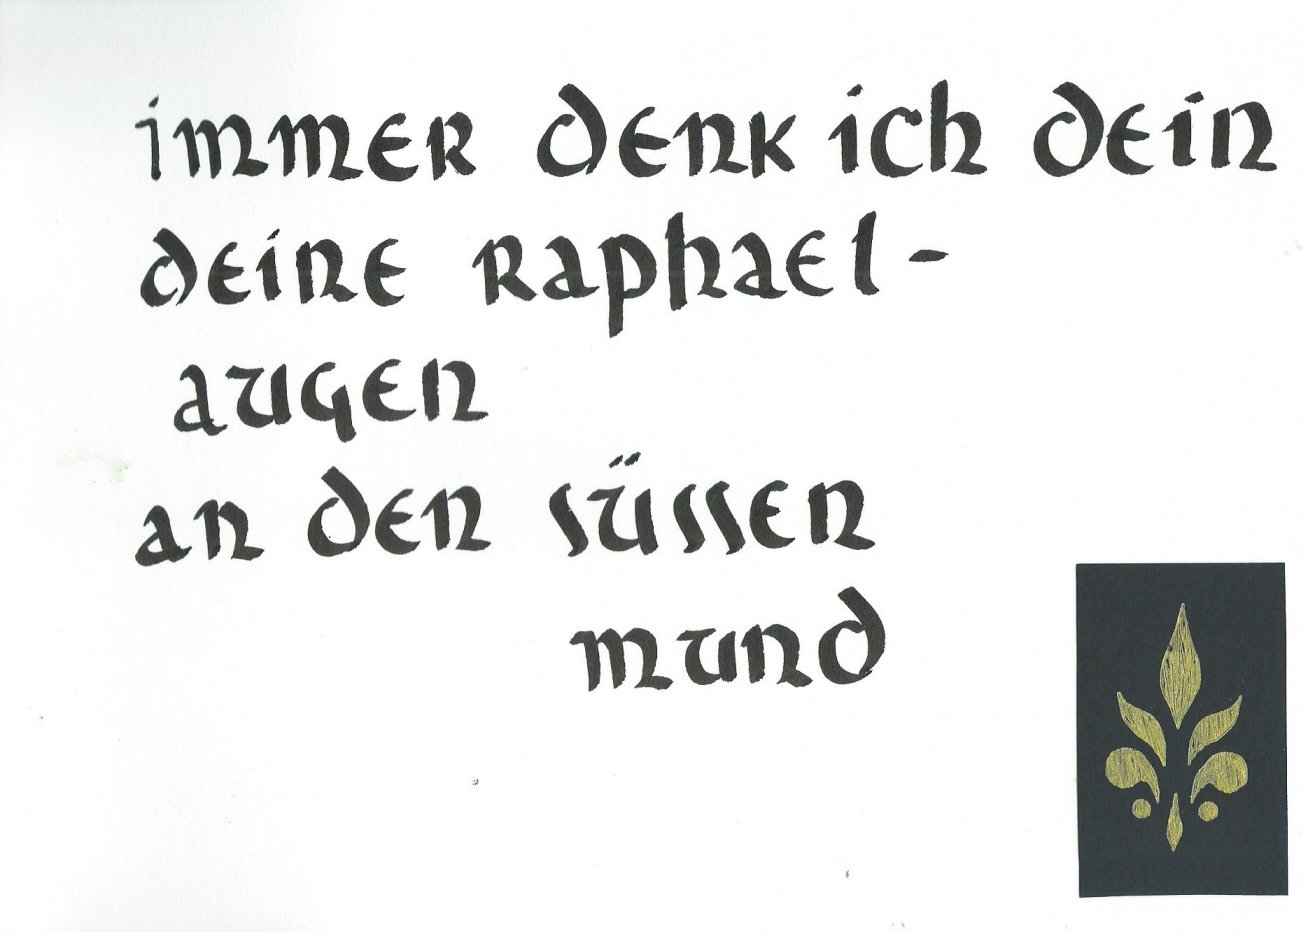 immer denk ich dein
deine raphael-
augen
an den süssen
mund